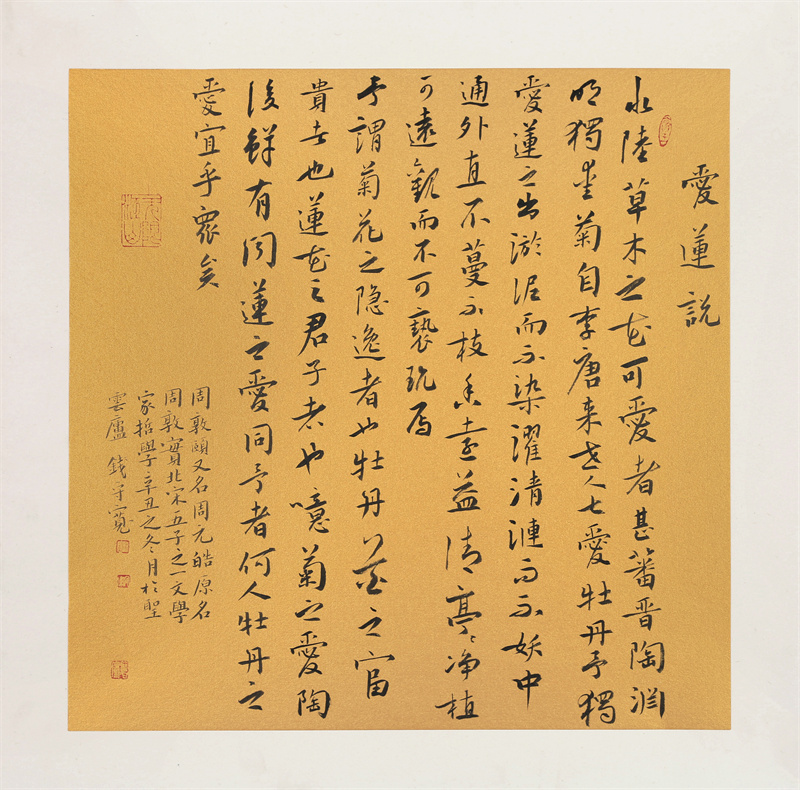 愛蓮説
水陸草木之花可愛者甚蕃晋陶渊
明獨愛菊自李唐来世人甚愛牡丹予獨
愛蓮之出淤泥而不染濯清漣而不妖中
通外直不蔓不枝香遠益清亭〻净植
可遠觀而不可褻玩焉
予謂菊花之隐逸者也牡丹花之富
貴者也蓮花之君子者也噫菊之愛陶
後鲜有闻蓮之愛同予者何人牡丹之
愛宜乎衆矣
周敦頤又名周元皓原名
周敦實北宋五子之一文學
家哲學辛丑之冬月於聖
雲廬 錢守寬